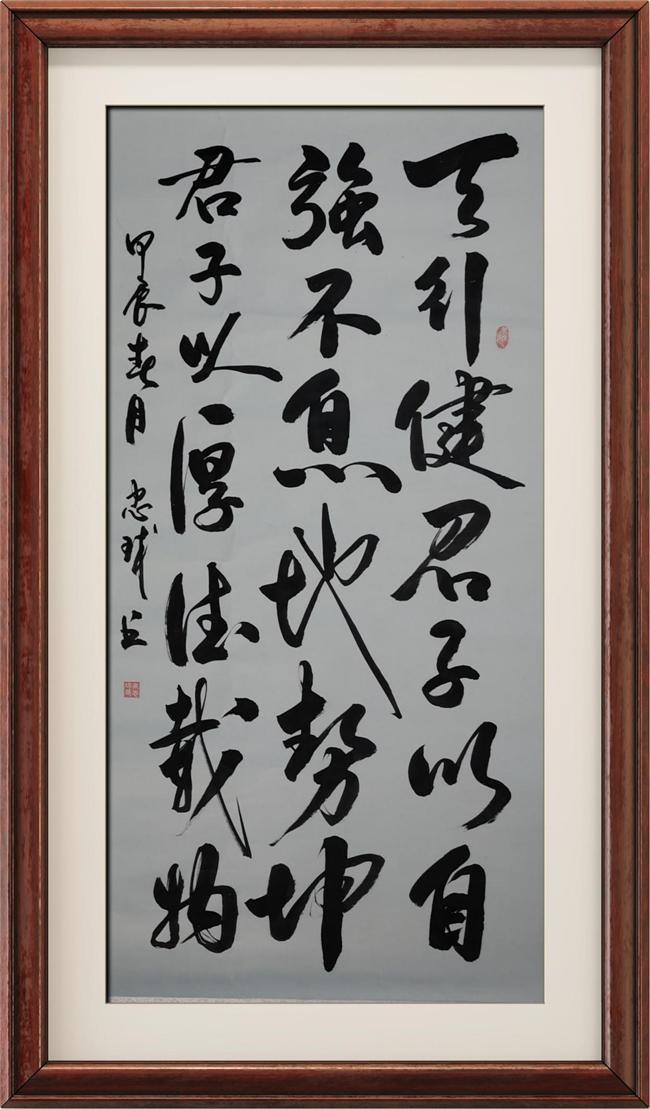 天行健君子以自
強不息地勢坤
君子以厚德載物
甲辰春月 忠球書